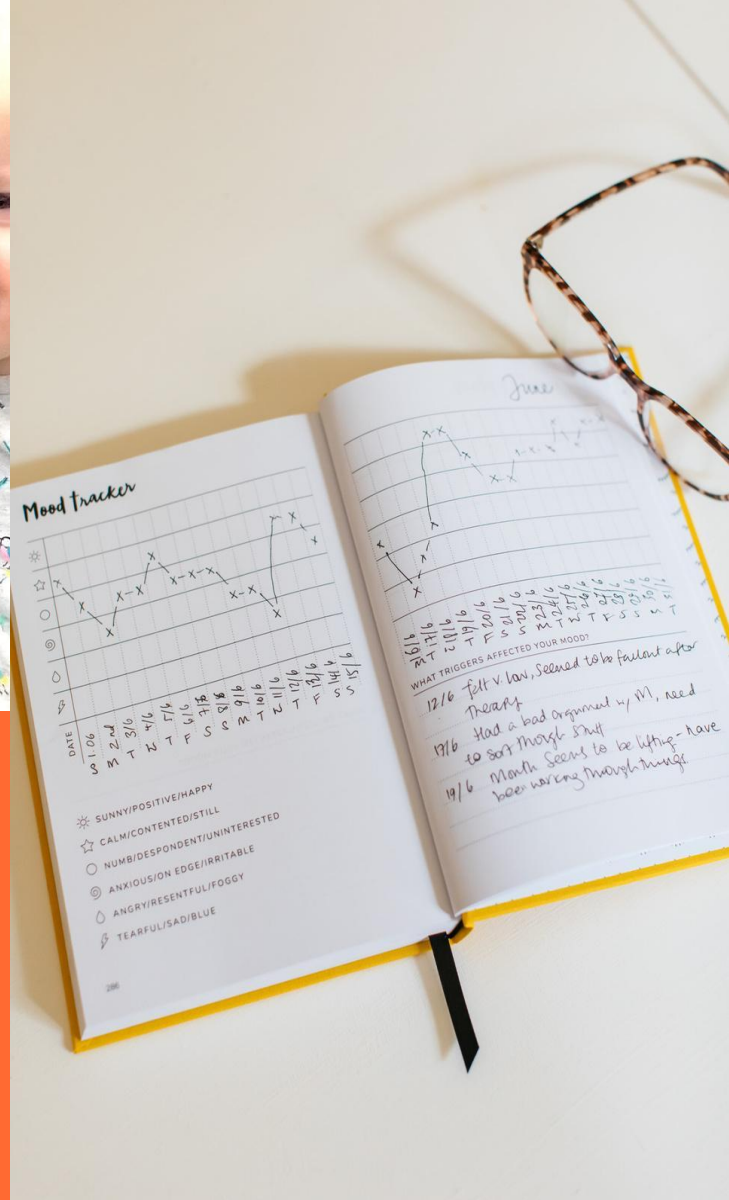 Mood tracker
DATE
S 1.06
M 2nd
T 3/6
4/6
T 5/6
F 6/6
S 7/6
S 8/6
M 9/6
T 10/6
11/6
T 12/6
F 13/6
S 14/6
S 15/6
SUNNY/POSITIVE/HAPPY
CALM/CONTENTED/STILL
NUMB/DESPONDENT/UNINTERESTED
ANXIOUS/ON EDGE/IRRITABLE
ANGRY/RESENTFUL/FOGGY
TEARFUL/SAD/BLUE
286
June
M 16/6
T 17/6
18/6
T 19/6
F 20/6
S 21/6
S 22/6
M 23/6
T 24/6
WHAT TRIGGERS AFFECTED YOUR MOOD?
12/6 felt v. low, Seemed to be fallout after
Therapy
17/6 Had a bad argument w/ M, need
to sort through stuff
19/6 Month Seems to be lifting - have
been working through things